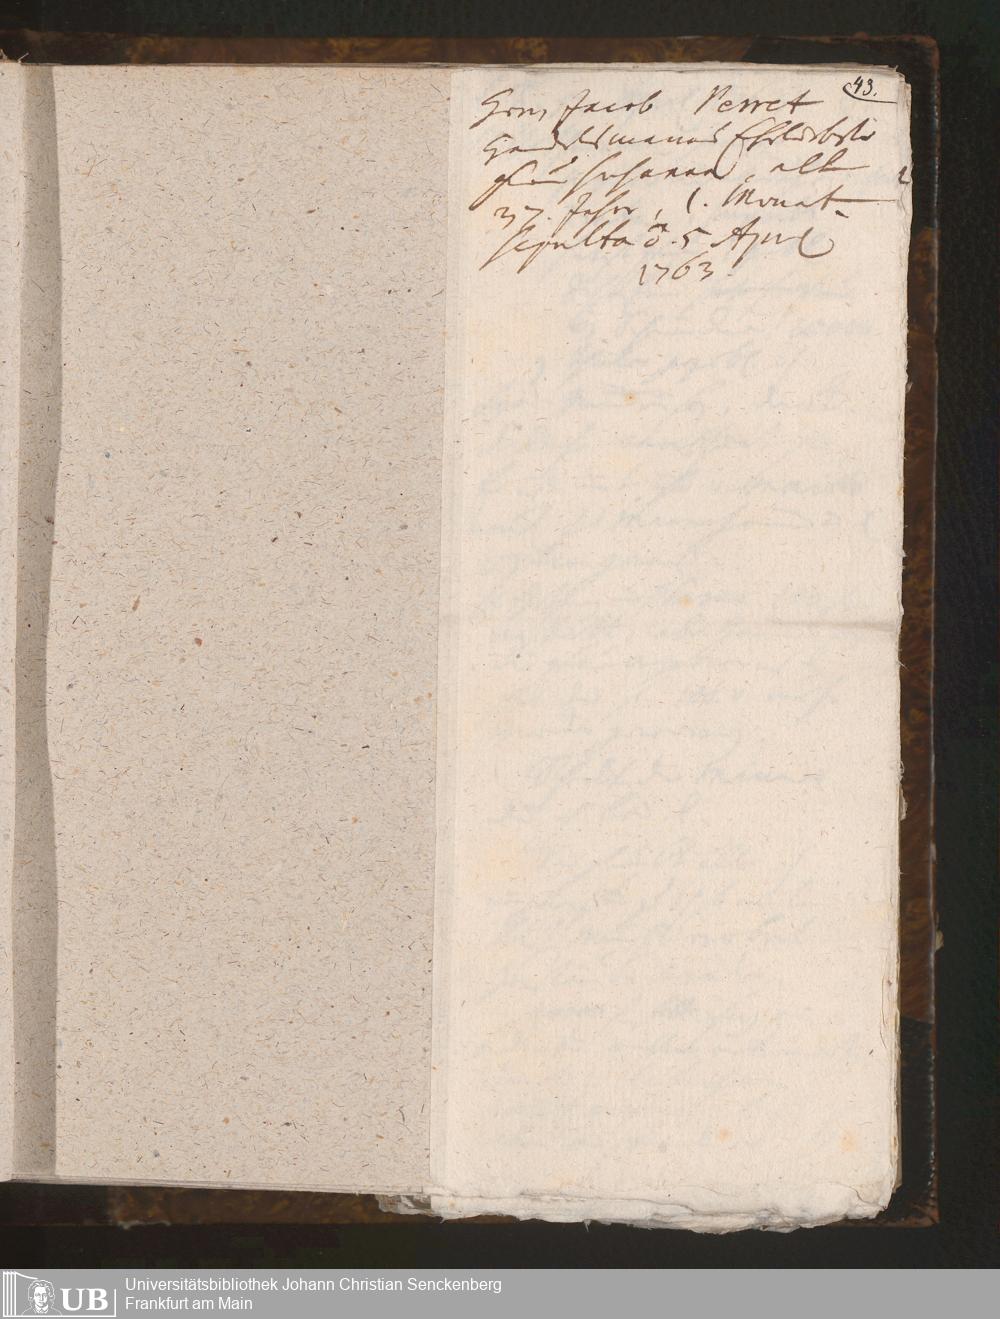 43.
Herrn Jacob Perret
Handelsmanns Eheliebste
Susanna, alt
37. Jahr, 1. Monat
sepulta d. 5 April
1763.
UB Universitätsbibliothek Johann Christian Senckenberg
Frankfurt am Main